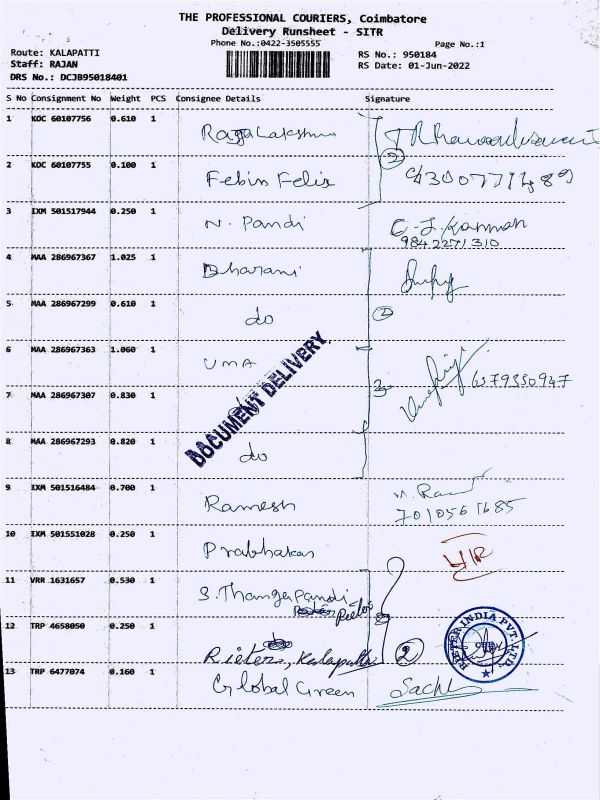 THE PROFESSIONAL COURIERS, Coimbatore
Delivery Runsheet - SITR
Phone No.:0422-3505555
Page No.:1
Route: KALAPATTI
Staff: RAJAN
DRS No.: DCJB95018401
RS No.: 950184
RS Date: 01-Jun-2022
S No Consignment No Weight PCS Consignee Details Signature
1 KOC 60107756 0.610 1
2 KOC 60107755 0.100 1 Febin Felix
3 IXM 501517944 0.250 1 N. Pandi
9842271310
4 MAA 286967367 1.025 1 Bharani
5 MAA 286967299 0.610 1 do 2
6 MAA 286967363 1.060 1 UMA
7 MAA 286967307 0.830 1 do 3 6379350947
8 MAA 286967293 0.820 1 do
DOCUMENT DELIVERY
9 IXM 501516484 0.700 1 Ramesh
10 IXM 501551028 0.250 1 Prabhakar
11 VRR 1631657 0.530 1 S. Thangapandi
Rieter
12 TRP 4658050 0.250 1
Rieter, Kalapatti 2
RIETER INDIA PVT. LTD.
13 TRP 6477074 0.160 1 Global Green